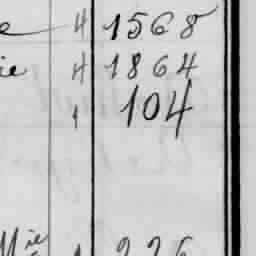 4 1568
ie 4 1864
1 104
Mie 1 226